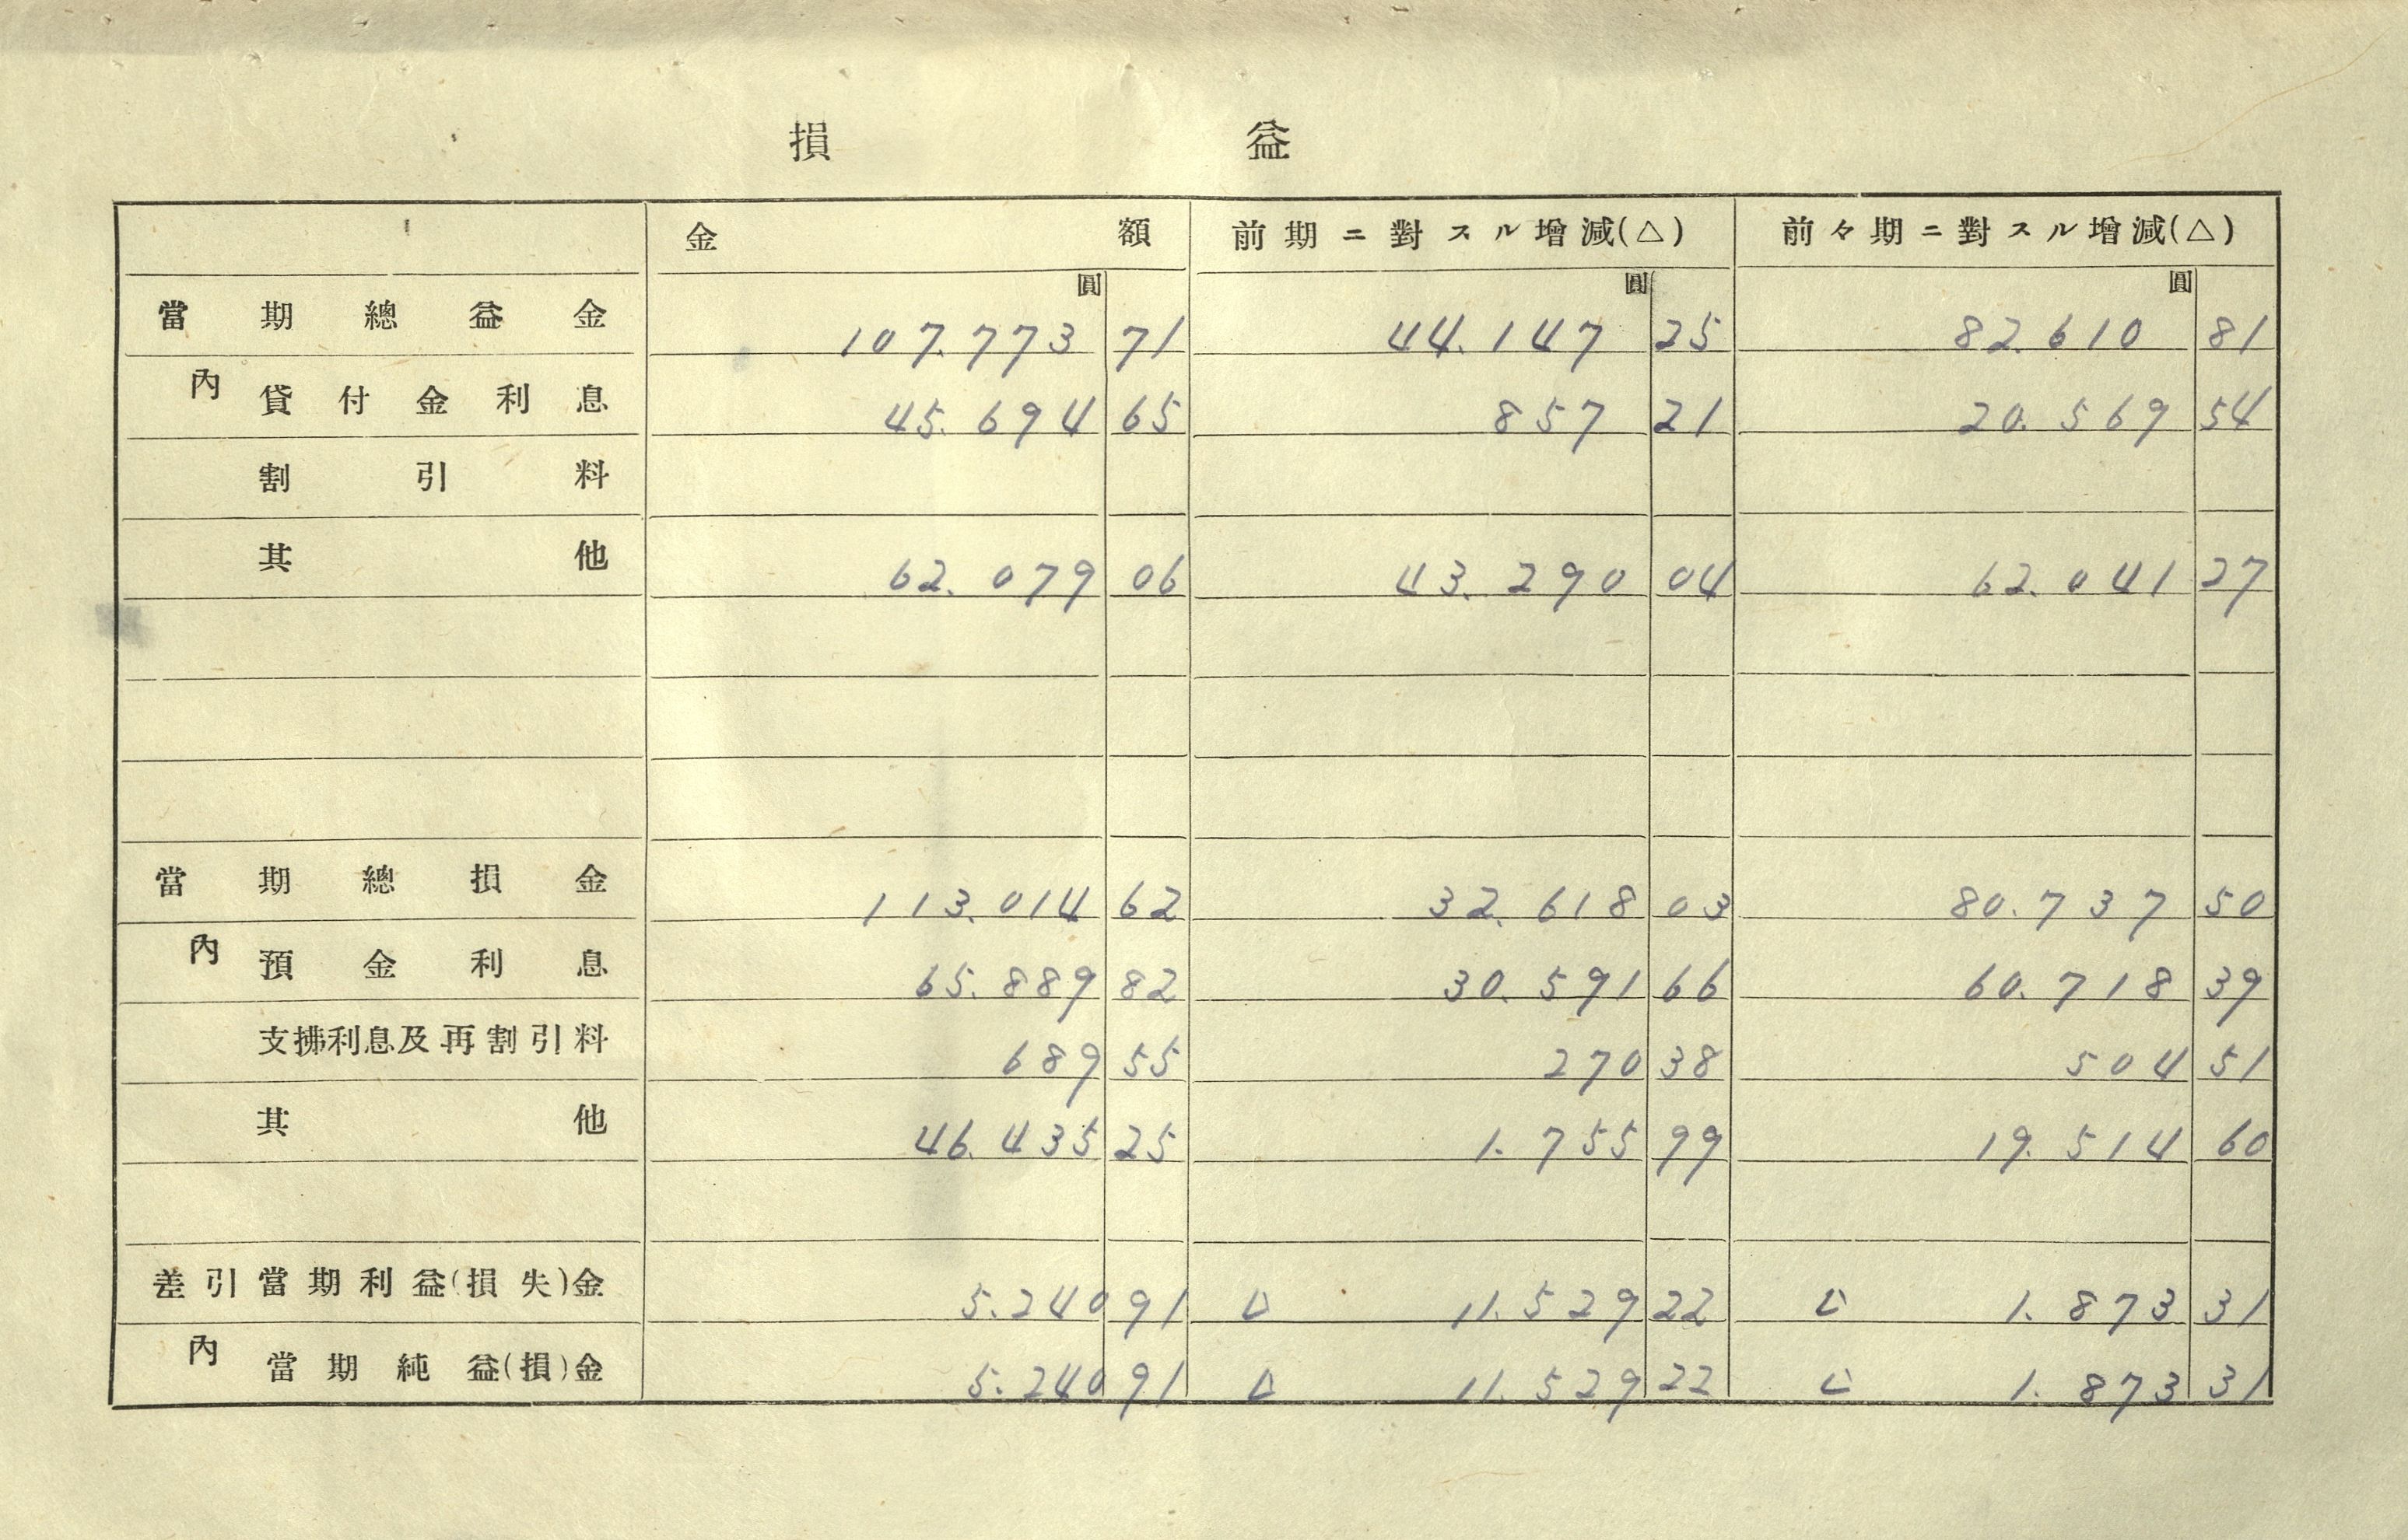 損益
金額 前期ニ對スル增減(△) 前々期ニ對スル增減(△)
圓 圓 圓
當期總益金 107.773 71 44.147 25 82.610 81
內 貸付金利息 45.694 65 857 21 20.569 54
割引料
其他 62.079 06 43.290 04 62.041 27
當期總損金 113.014 62 32.618 03 80.737 50
內 預金利息 65.889 82 30.591 66 60.718 39
支拂利息及再割引料 689 55 270 38 504 51
其他 46.435 25 1.755 99 19.514 60
差引當期利益(損失)金 5.240 91 △ 11.529 22 △ 1.873 31
內 當期純益(損)金 5.240 91 △ 11.529 22 △ 1.873 31